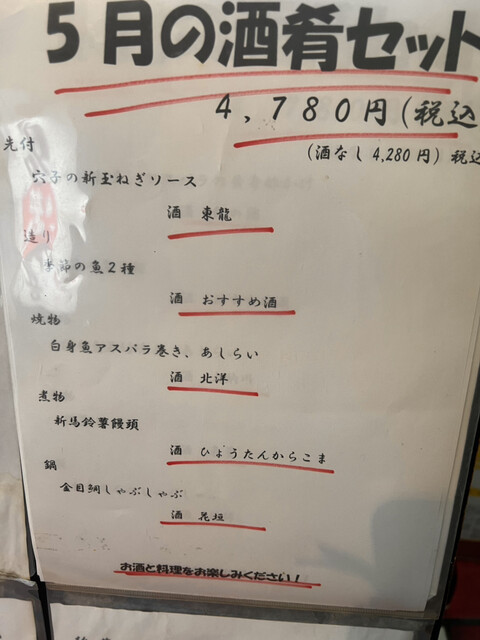 5月の酒肴セット
4,780円(税込
(酒なし4,280円)税込
先付
穴子の新玉ねぎソース
酒 東龍
造り
季節の魚2種
酒 おすすめ酒
焼物
白身魚アスパラ巻き、あしらい
酒 北洋
煮物
新馬鈴薯饅頭
酒 ひょうたんからこま
鍋
金目鯛しゃぶしゃぶ
酒 花垣
お酒と料理をお楽しみください!